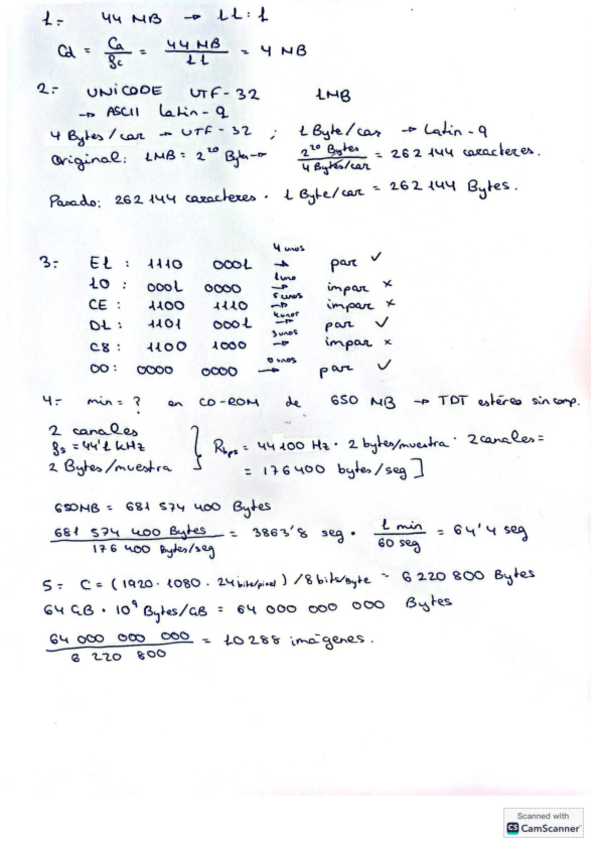 1.- 44 MB → 11:1
Cd = Ca/fc = 44 MB/11 = 4 MB
2.- UNICODE UTF-32 1MB
→ ASCII Latin-9
4 Bytes/car → UTF-32 ; 1 Byte/car → Latin-9
Original: 1MB = 2^20 Bytes → 2^20 Bytes/4 Bytes/car = 262 144 caracteres.
Pasado: 262 144 caracteres · 1 Byte/car = 262 144 Bytes.
3.- E1 : 1110 0001 4 unos → par ✓
10 : 0001 0000 1 uno → impar ×
CE : 1100 1110 5 unos → impar ×
D1 : 1101 0001 4 unos → par ✓
C8 : 1100 1000 3 unos → impar ×
00 : 0000 0000 0 unos → par ✓
4.- min = ? en CD-ROM de 650 MB → TDT estéreo sin comp.
2 canales
fs = 44'1 kHz
2 Bytes/muestra
} Rbps = 44 100 Hz · 2 bytes/muestra · 2 canales =
= 176 400 bytes/seg ]
650MB = 681 574 400 Bytes
681 574 400 Bytes/176 400 Bytes/seg = 3863'8 seg · 1 min/60 seg = 64'4 seg
5.- C = (1920 · 1080 · 24 bits/pixel) / 8 bits/byte = 6 220 800 Bytes
64 GB · 10^9 Bytes/GB = 64 000 000 000 Bytes
64 000 000 000/6 220 800 = 10 288 imágenes.
Scanned with
CS CamScanner